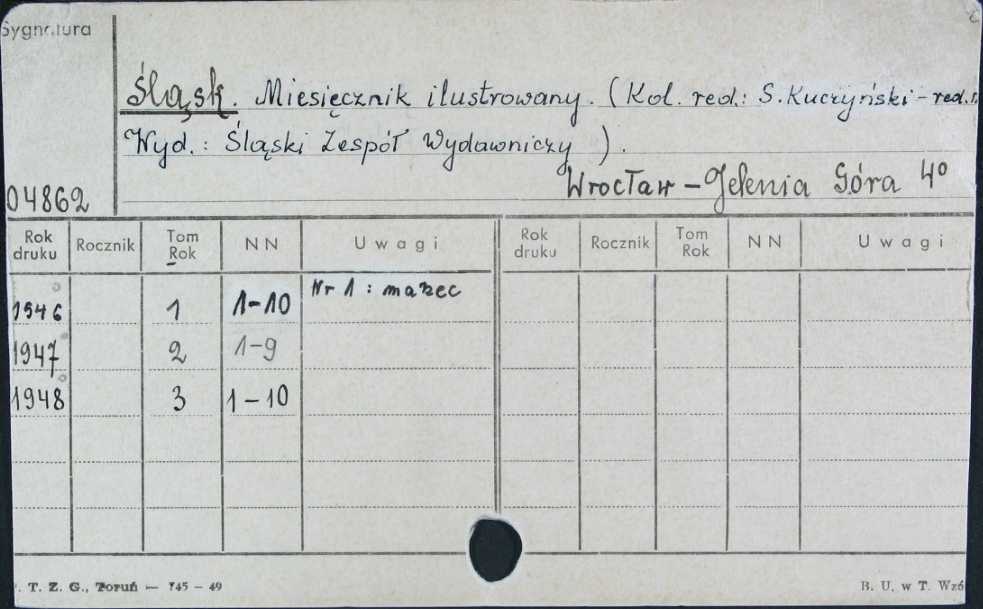 Sygnatura
Śląsk. Miesięcznik ilustrowany. (Kol. red.: S. Kuczyński - red.
Wyd.: Śląski Zespół Wydawniczy ).
Wrocław - Jelenia Góra 4º
04862
Rok druku Rocznik Tom Rok NN Uwagi Rok druku Rocznik Tom Rok NN Uwagi
1946 1 1-10 Nr 1 : marzec
1947 2 1-9
1948 3 1-10
. T. Z. G., Toruń — 745 - 49
B. U. w T. Wz6